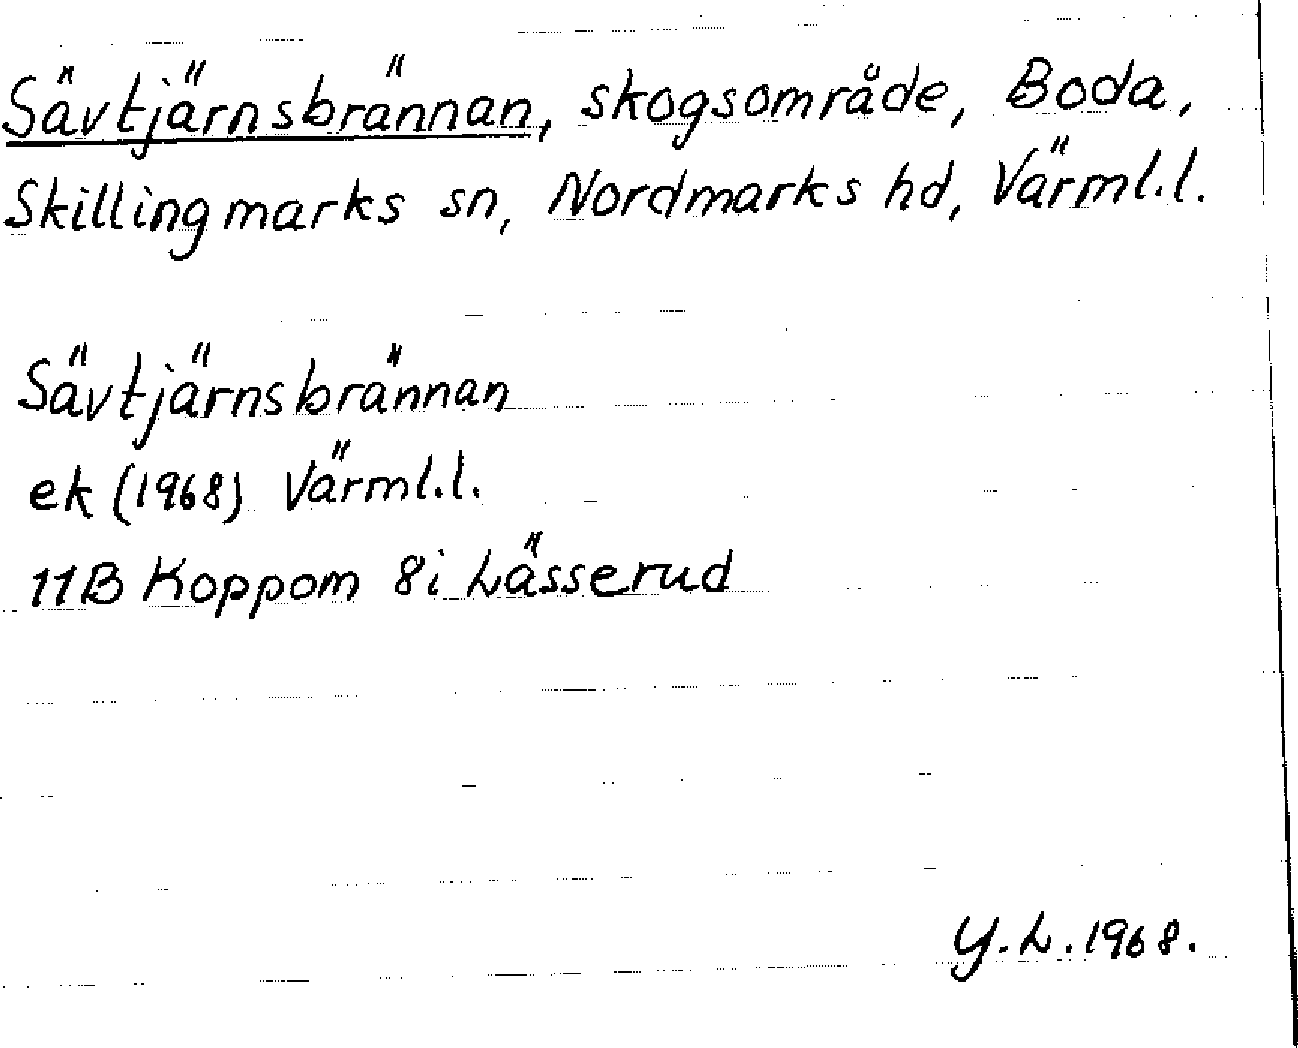 Sävtjärnsbrännan, skogsområde, Boda,
Skillingmarks sn, Nordmarks hd, Värml.l.
Sävtjärnsbrännan
ek (1968) Värml.l.
11B Koppom 8i Lässerud
Y.L. 1968.